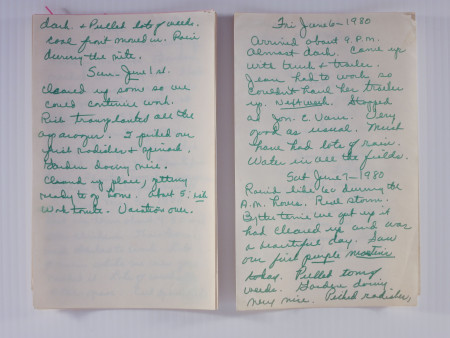 dark. & Pulled lots of weeds.
cool front moved in. Rain
during the nite.
Sun-June 1st.
Cleaned up some so we
could continue work.
Russ transplanted all the
asparagus. I picked our
first radishes & spinach.
Garden doing nice.
Cleaned up place, getting
ready to go home. about 5:
Work tonite. Vacation over.
Fri June 6-1980
Arrived about 9 P.M.
Almost dark. Came up
with truck & trailer.
Jean had to work so
couldn't haul her trailer
up. Next week. Stopped
at Jon. C. Vans. Very
good as usual. Must
have had lots of rain.
Water in all the fields.
Sat June 7-1980
Rained like 60 during the
A.M. hours. Real storm.
By the time we got up it
had cleared up and was
a beautiful day. Saw
our first purple martin
today. Pulled tons of
weeds. Garden doing
very nice. Picked radishes,